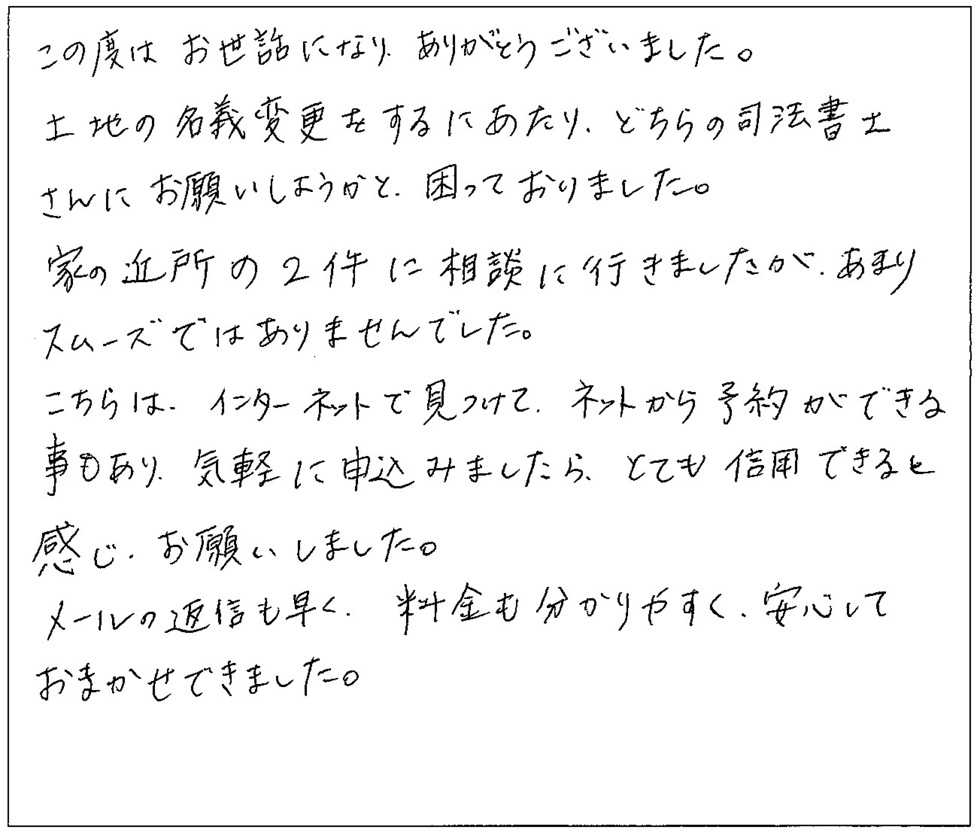 この度はお世話になり、ありがとうございました。
土地の名義変更をするにあたり、どちらの司法書士
さんにお願いしようかと、困っておりました。
家の近所の2件に相談に行きましたが、あまり
スムーズではありませんでした。
こちらは、インターネットで見つけて、ネットから予約ができる
事もあり、気軽に申込みましたら、とても信用できると
感じ、お願いしました。
メールの返信も早く、料金も分かりやすく、安心して
おまかせできました。